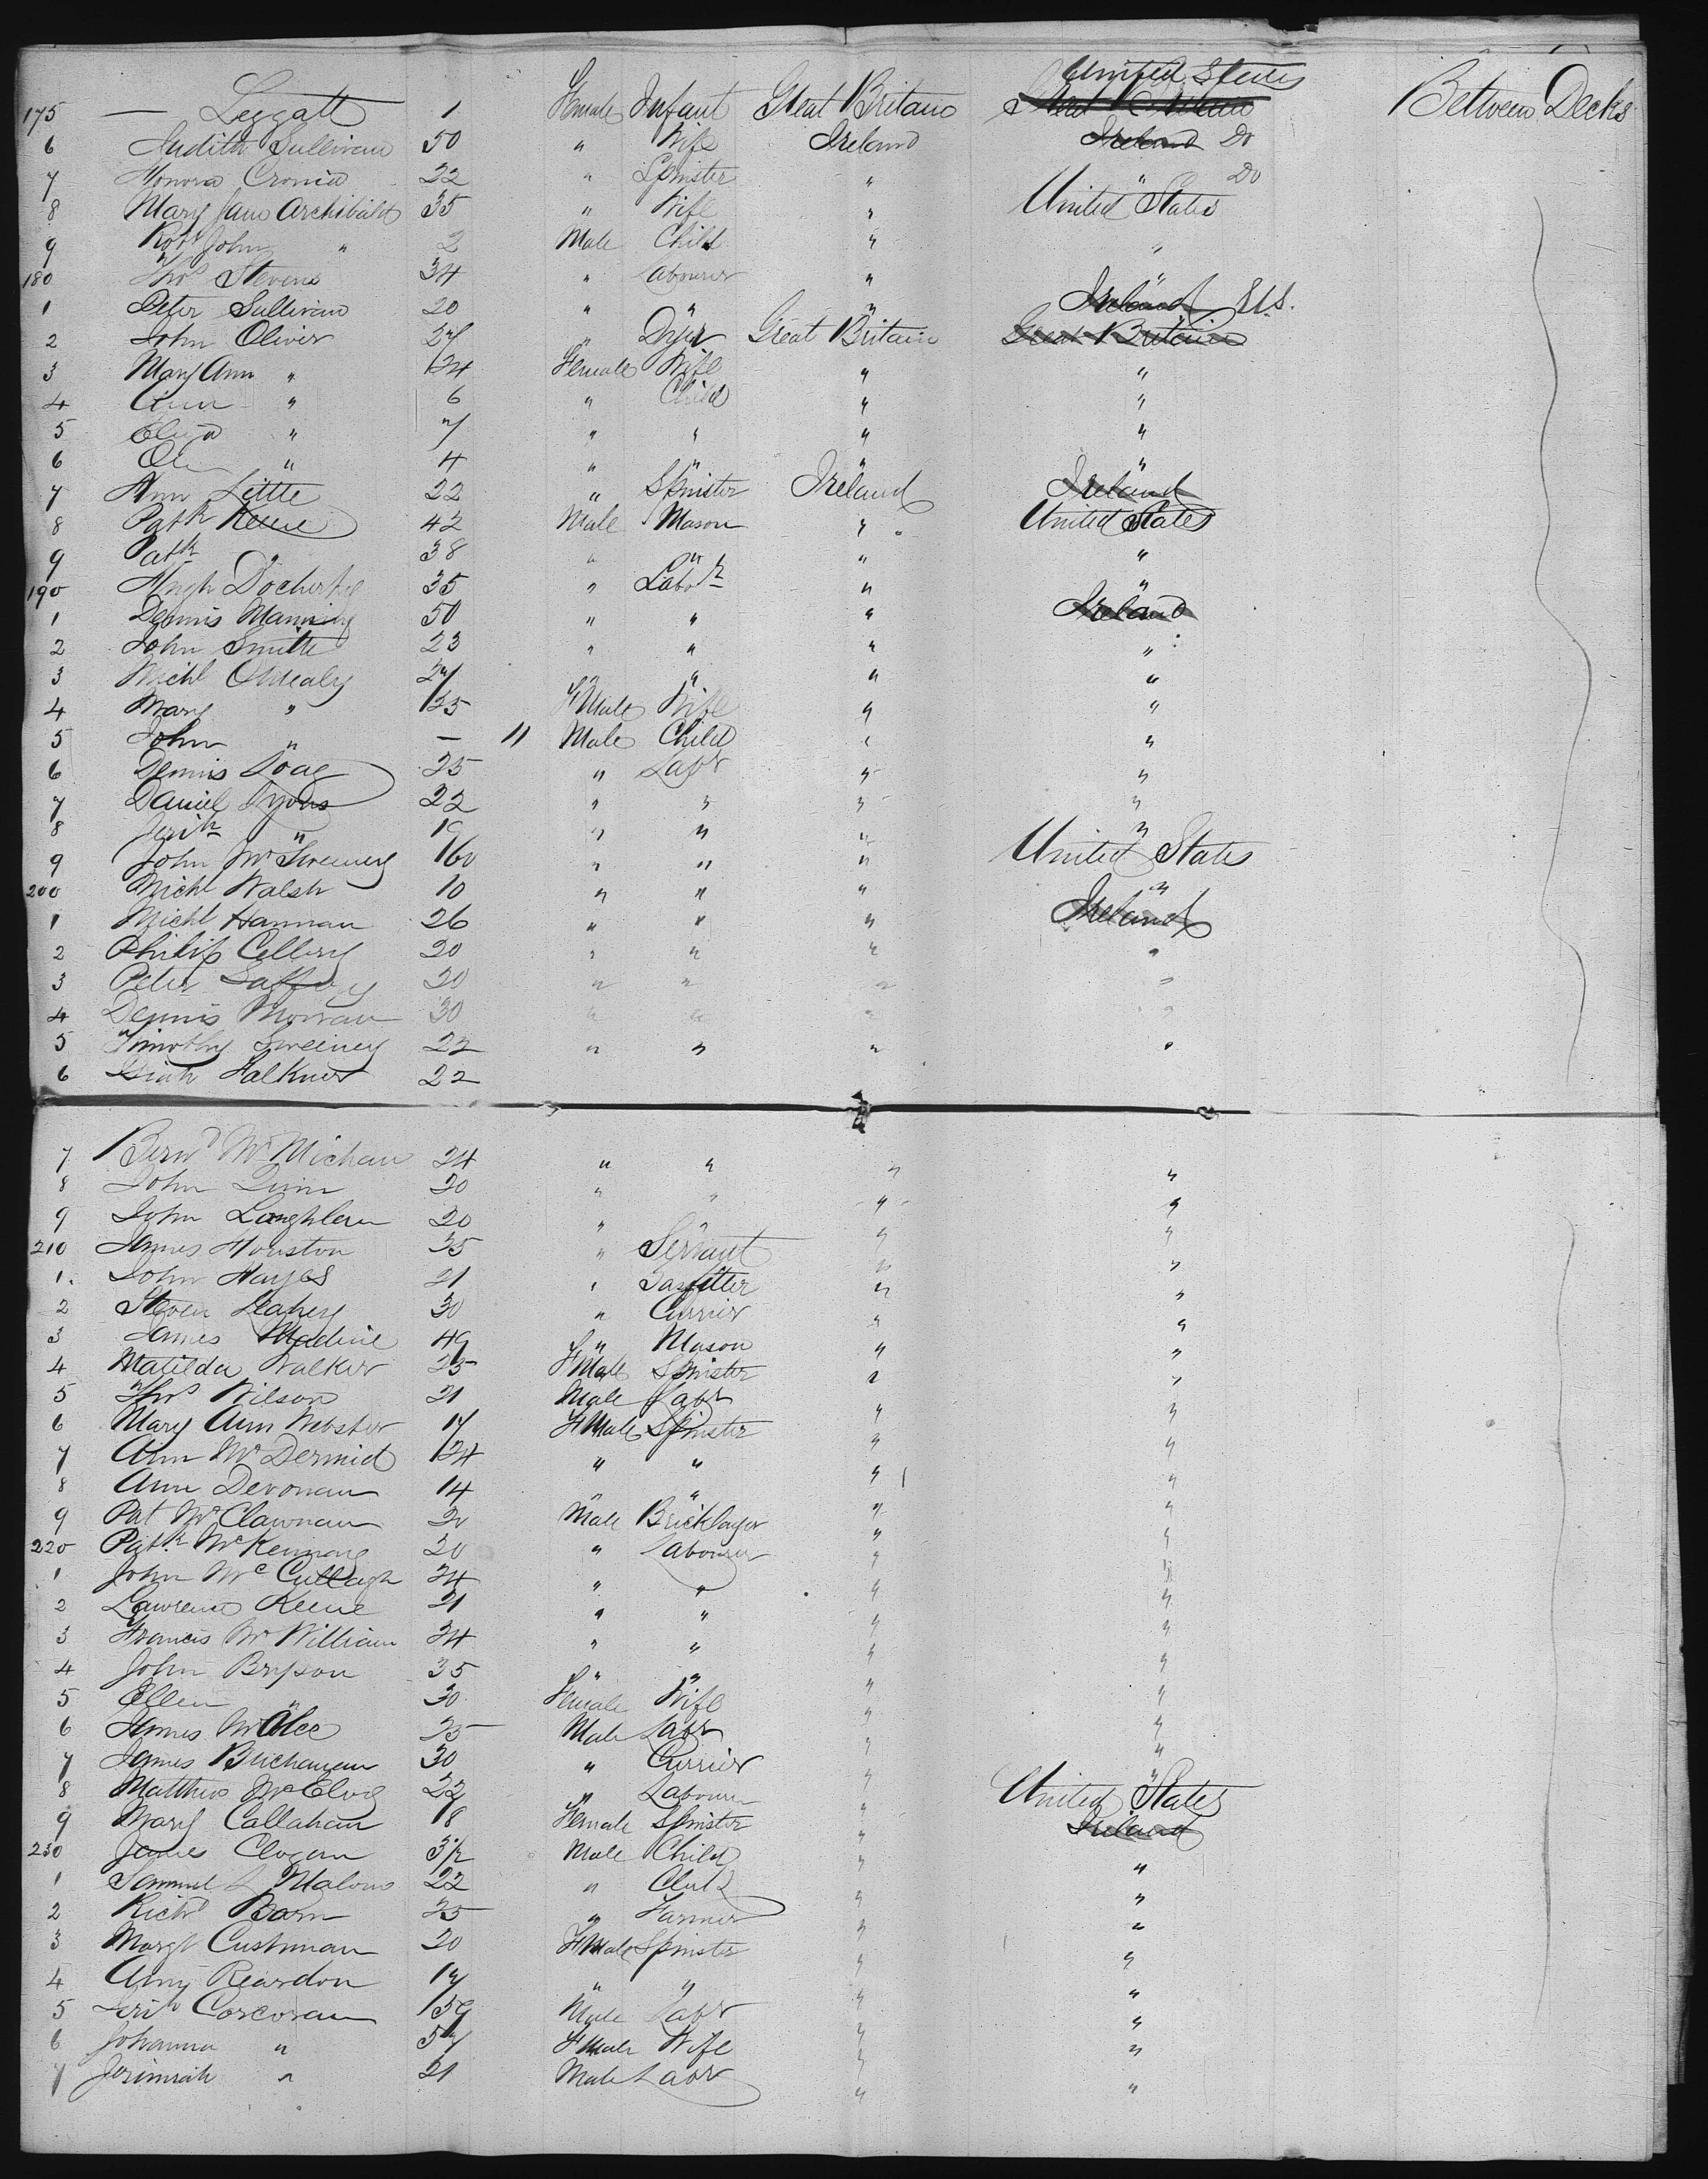 175 — Leggatt 1 Female Infant Great Britain United States Great Britain Between Decks
6 Judith Sullivan 50 " Wife Ireland Ireland Do
7 Honora Cronin 22 " Spinster " " Do
8 Mary Jane Archibald 35 " Wife " United States
9 Robt John " 2 Male Child " "
180 Thos Stevens 34 " Labourer " "
1 Peter Sullivan 20 " " " Ireland U.S.
2 John Oliver 27 " Dyer Great Britain Great Britain
3 Mary Ann " 24 Female Wife " "
4 Ann " 6 " Child " "
5 Eliza " 7 " " " "
6 " 4 " " " "
7 Ann Little 22 " Spinster Ireland Ireland
8 Patk Keene 42 Male Mason " United States
9 Patk " 38 " " " "
190 Hugh Docherty 35 " Labor " "
1 Dennis Manning 50 " " " Ireland
2 John Smith 23 " " " "
3 Michl OMealy 27 " " " "
4 Mary " 25 FMale Wife " "
5 John " — 11 Male Child " "
6 Dennis 25 " Labr " "
7 Daniel Lyons 22 " " " "
8 Jerih " 19 " " " "
9 John McSweeney 60 " " " United States
200 Michl Walsh 10 " " " "
1 Michl Hannan 26 " " " Ireland
2 Philip Cellery 20 " " " "
3 Peter Laffrey 20 " " " "
4 Dennis Morran 30 " " " "
5 Timothy Sweeney 22 " " " "
6 Falkner 22
7 Bernd McMichan 24 " " " "
8 John Quinn 20 " " " "
9 John Loughlan 20 " " " "
210 James Houston 35 " Servant " "
1. John Hayes 21 " Gasfitter " "
2 Steven Leahey 30 " Currier " "
3 James Madine 49 " Mason " "
4 Matilda Walker 25 FMale Spinster " "
5 Thos Wilson 21 Male Labr " "
6 Mary Ann Webster 17 FMale Spinster " "
7 Ann McDermid 24 " " " "
8 Ann Devonan 14 " " " "
9 Pat McClawnan 20 Male Bricklayer " "
220 Patk McKennony 20 " Labourer " "
1 John McCullagh 24 " " " "
2 Lawrence Keene 21 " " " "
3 Francis McWilliam 24 " " " "
4 John Bryson 35 " " " "
5 Ellen " 30 Female Wife " "
6 James McAlee 25 Male Labr " "
7 James Buchanan 30 " Currier " "
8 Matthew McElvoy 22 " Labourer " United States
9 Mary Callahan 18 Female Spinster " Ireland
230 James Clogan 3½ Male Child " "
1 Samuel L Malone 22 " Clerk " "
2 Richd Barn 25 " Farmer " "
3 Margt Cushman 20 FMale Spinster " "
4 Amy Reardon 17 " " " "
5 Jerih Corcoran 59 Male Labr " "
6 Johanna " 57 FMale Wife " "
7 Jerimiah " 21 Male Labr " "